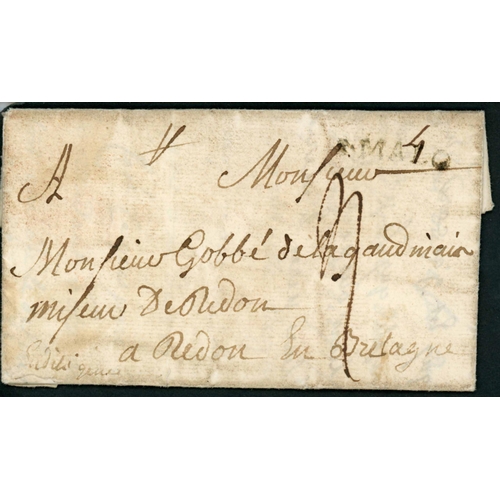 S.MALO
A Monsieur
Monsieur Gobbé de la gaudmais
miseur De Redon
a Redon En Bretagne